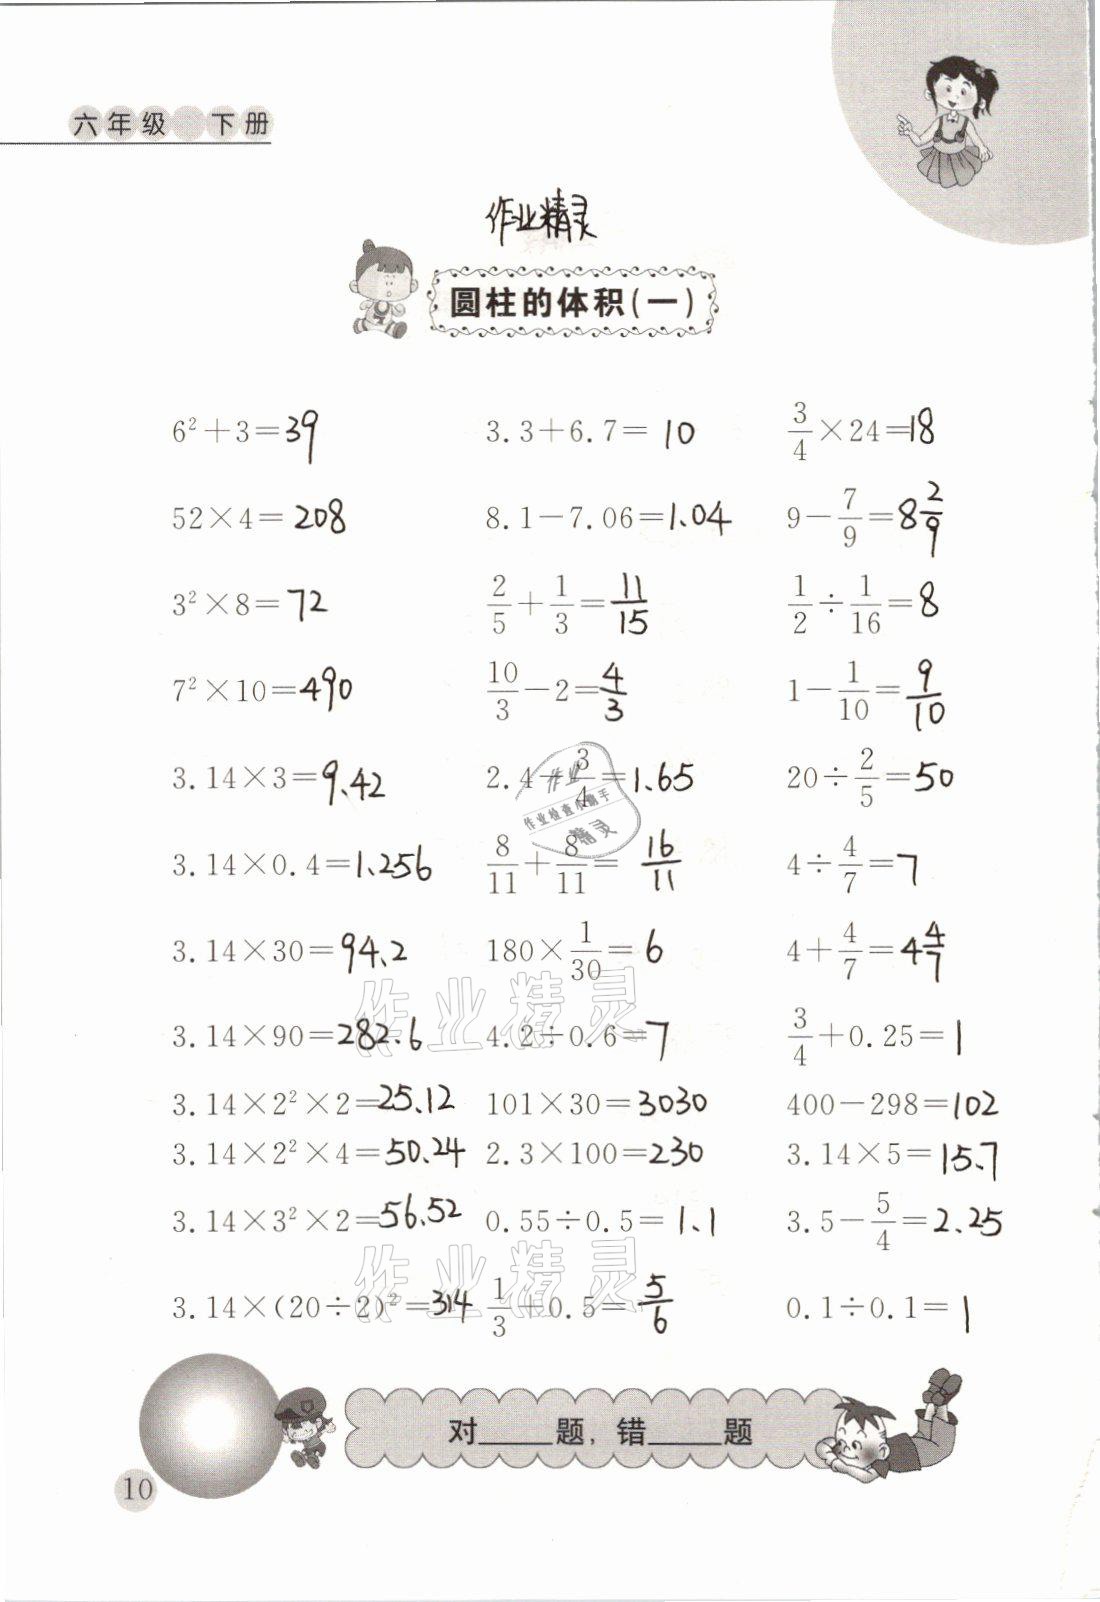 六年级 下册
作业精灵
圆柱的体积(一)
6²+3=39 3.3+6.7=10 3/4×24=18
52×4=208 8.1-7.06=1.04 9-7/9=8 2/9
3²×8=72 2/5+1/3=11/15 1/2÷1/16=8
7²×10=490 10/3-2=4/3 1-1/10=9/10
3.14×3=9.42 2.4-3/4=1.65 20÷2/5=50
作业
作业检查小助手
精灵
3.14×0.4=1.256 8/11+8/11=16/11 4÷4/7=7
3.14×30=94.2 180×1/30=6 4+4/7=4 4/7
作业精灵
3.14×90=282.6 4.2÷0.6=7 3/4+0.25=1
3.14×2²×2=25.12 101×30=3030 400-298=102
3.14×2²×4=50.24 2.3×100=230 3.14×5=15.7
3.14×3²×2=56.52 0.55÷0.5=1.1 3.5-5/4=2.25
作业精灵
3.14×(20÷2)²=314 1/3+0.5=5/6 0.1÷0.1=1
对____题,错____题
10